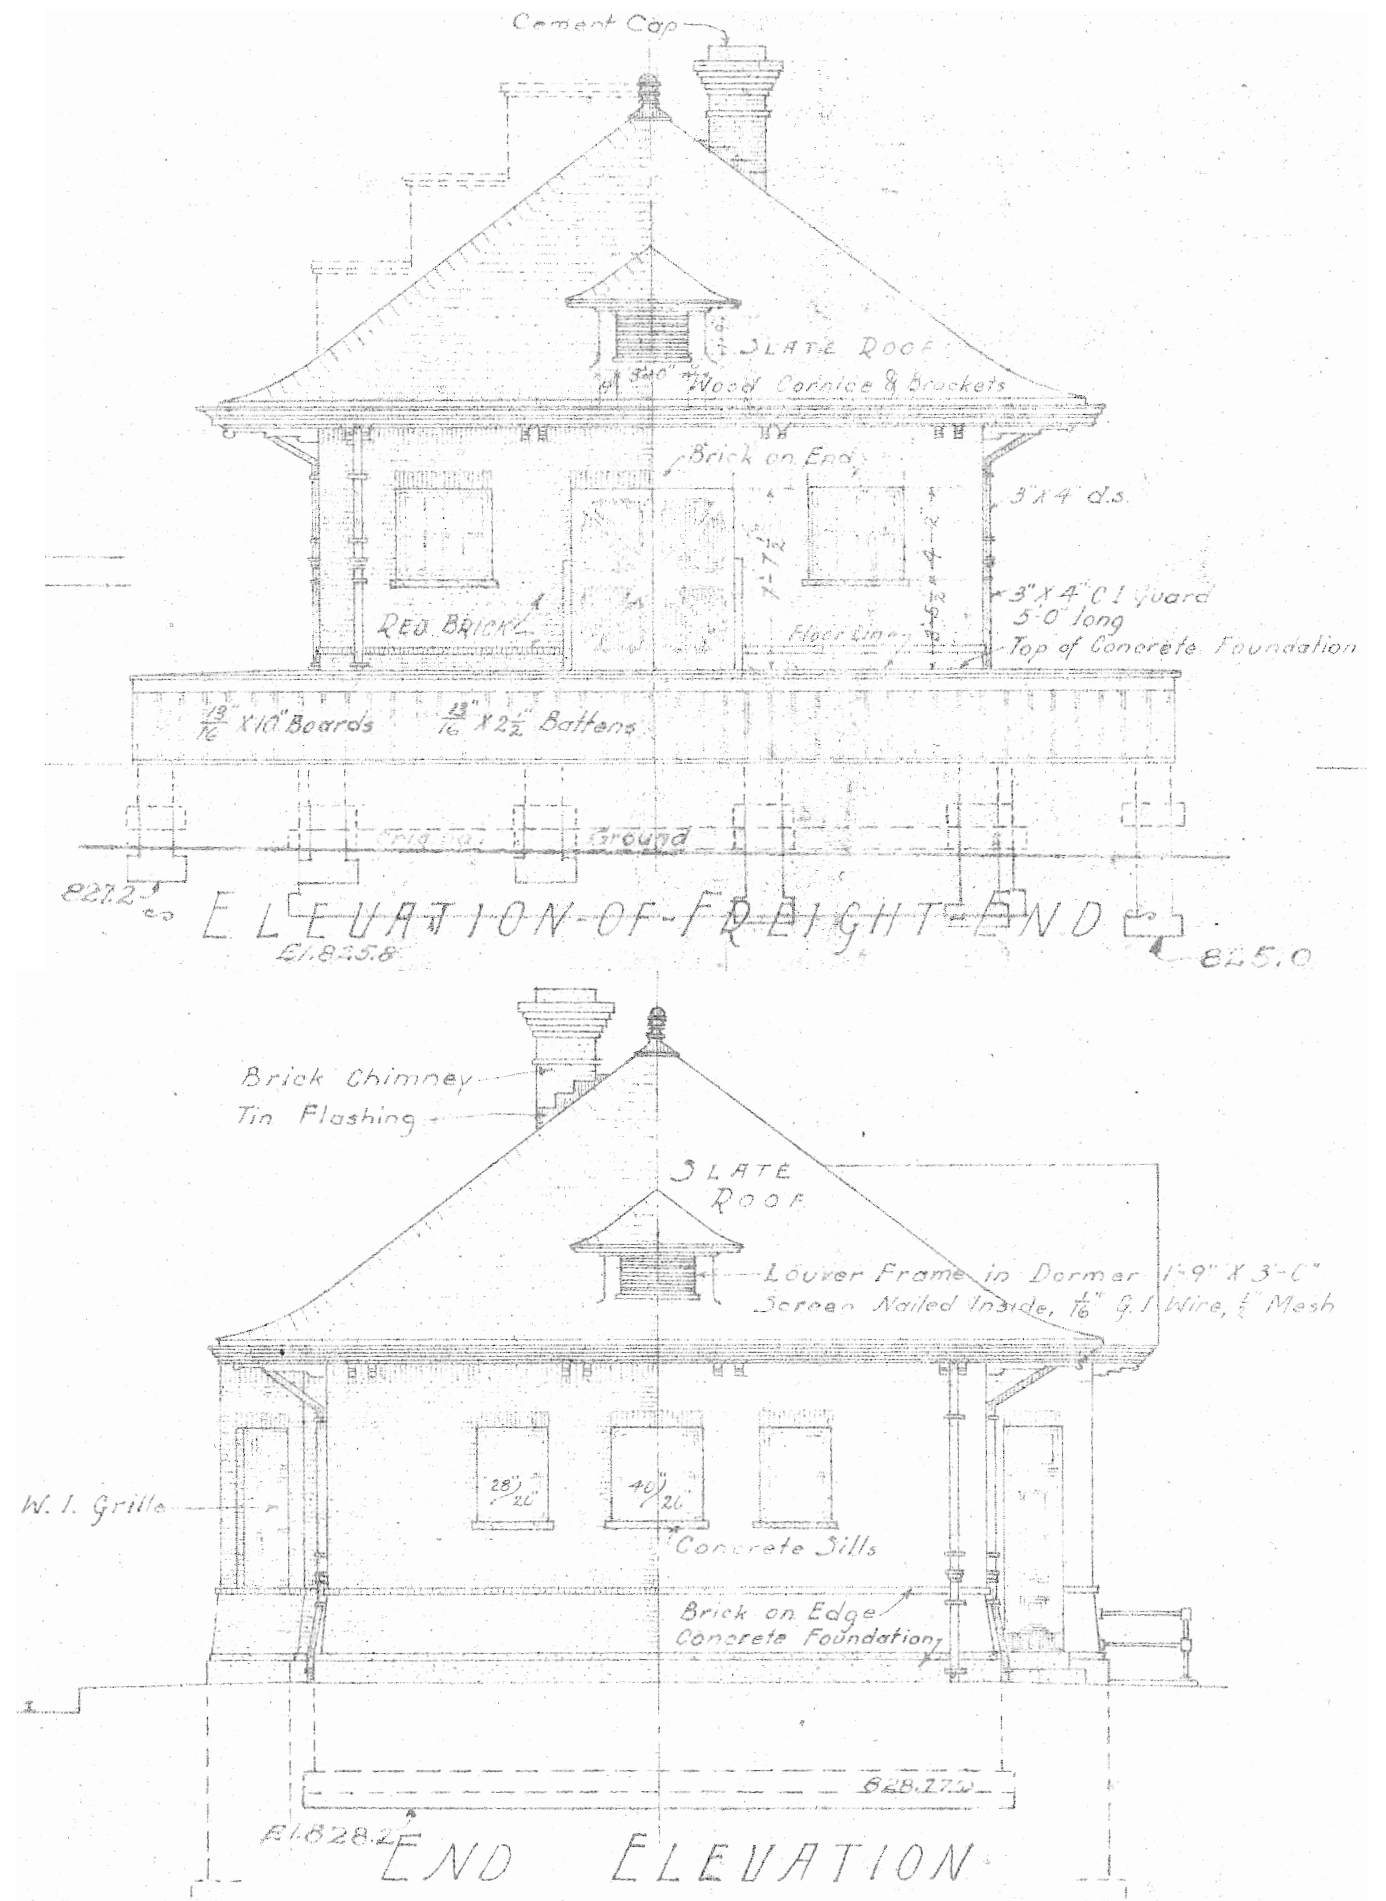 Cement Cap
SLATE ROOF
Wood Cornice & Brackets
Brick on End
3" X 4" d.s.
7'-7 1/2"
3"X 4" C I Guard
5'-0" long
RED BRICK
Floor Line
Top of Concrete Foundation
13/16" X 10" Boards
13/16" X 2 1/2" Battens
Original Ground
827.2
ELEVATION-OF-FREIGHT END
El. 825.8
825.0
Brick Chimney
Tin Flashing
SLATE
ROOF
Louver Frame in Dormer 1'-9" X 3'-0"
Screen Nailed Inside, 1/16" G.I Wire, 1/2" Mesh
28"/26"
40"/26"
W. I. Grille
Concrete Sills
Brick on Edge
Concrete Foundation
El. 828.2
END ELEVATION